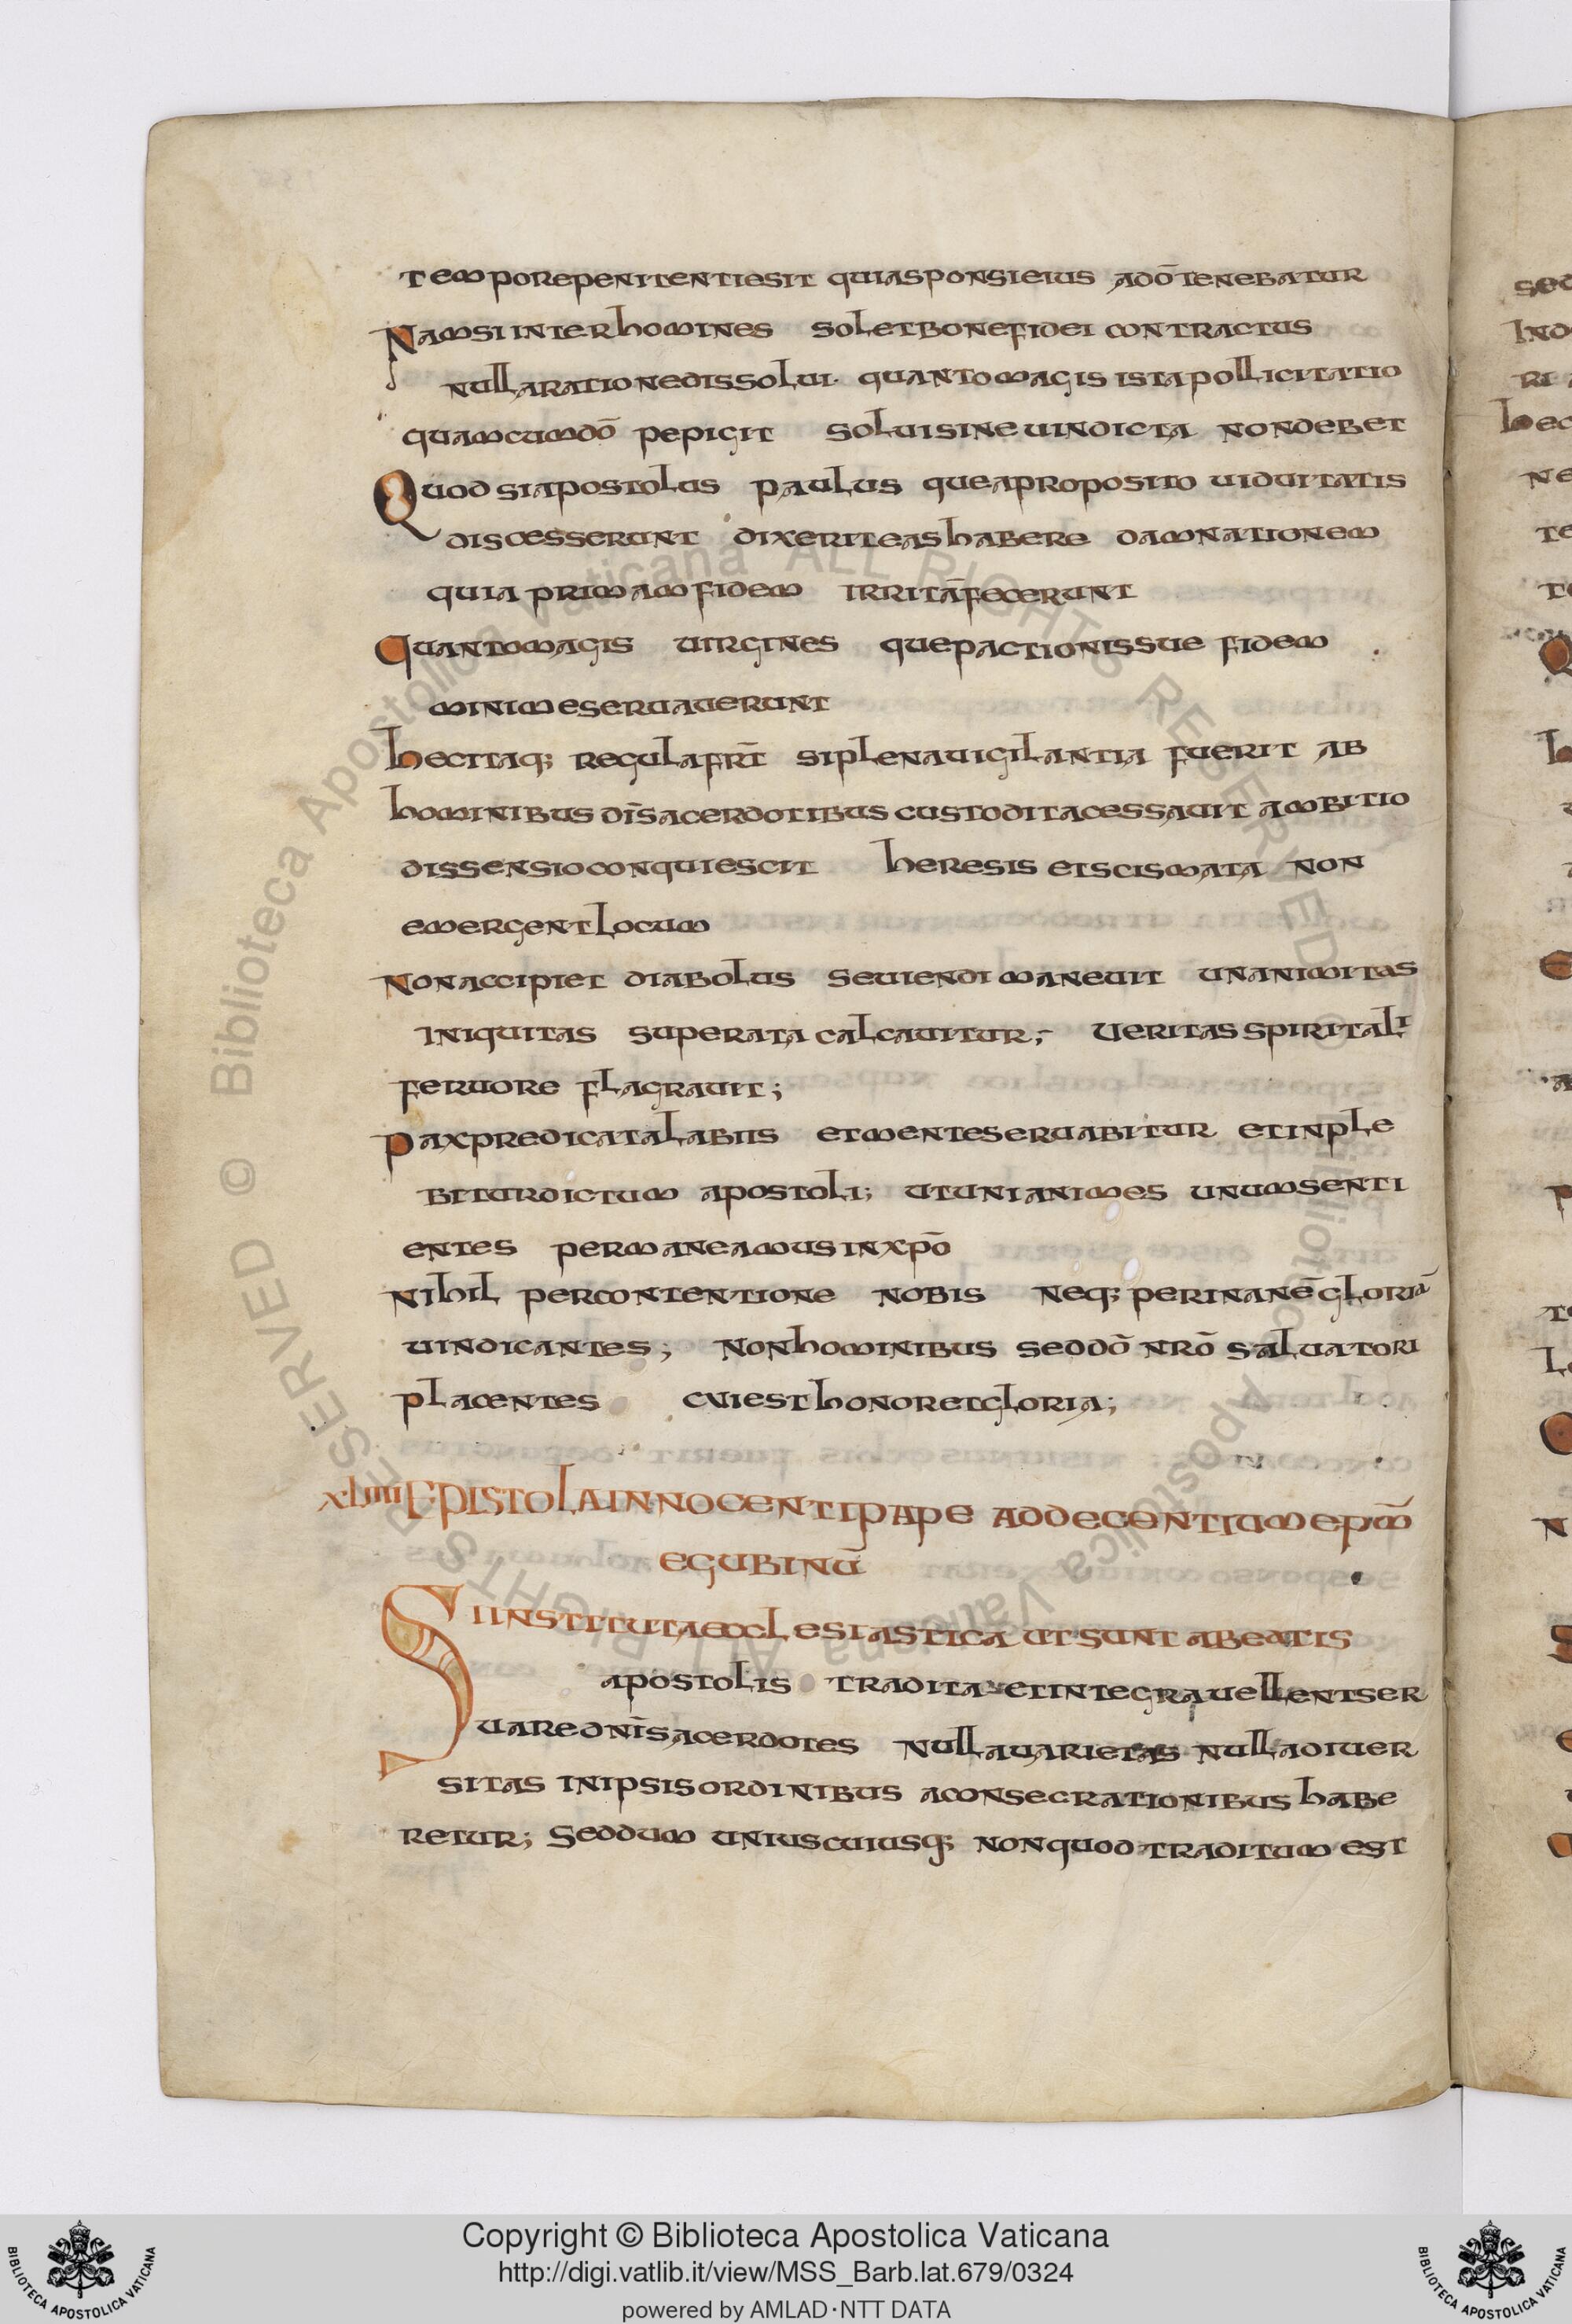 temporepenitentiesit quiasponsieius adōtenebatur
Namsiinterhomines soletbonefidei contractus
nullarationedissolui· quantomagis istapollicitatio
quamcumdō pepigit soluisineuindicta nondebet
Quod siapostolus paulus queaproposito uiduitatis
discesserunt dixeriteashabere damnationem
quia primamfidem irritāfecerunt
Quantomagis uirgines quepactionissue fidem
minimeseruauerunt
hecitaq; regulafrt̄ siplenauigilantia fuerit ab
hominibus dīsacerdotibus custoditacessauit ambitio
dissensioconquiescit heresis etscismata non
emergentlocum
Nonaccipiet diabolus seuiendi maneuit unanimitas
iniquitas superata calcauitur; ueritas spiritali
feruore flagrauit;
paxpredicatalabiis etmenteseruabitur etinple
biturdictum apostoli; utunianimes unumsenti
entes permaneamusinxpō
Nihil percontentione nobis neq; perinanē gloriā
uindicantes; nonhominibus seddō nrō saluatori
placentes cuiesthonoretgloria;
xLIIII Epistola innocenti pape addecentium epm̄
egubinū
Siinstitutaecclesiastica utsunt abeatis
apostolis tradita etintegrauellentser
uarednīsacerdotes nullauarietas nulladiuer
sitas inipsisordinibus aconsecrationibus habe
retur; seddum uniuscuiusq; nonquod traditum est
sed
Ind
ri
hec
ne
te
© Biblioteca Apostolica Vaticana ALL RIGHTS RESERVED
Copyright © Biblioteca Apostolica Vaticana
http://digi.vatlib.it/view/MSS_Barb.lat.679/0324
powered by AMLAD·NTT DATA
BIBLIOTECA APOSTOLICA VATICANA
BIBLIOTECA APOSTOLICA VATICANA